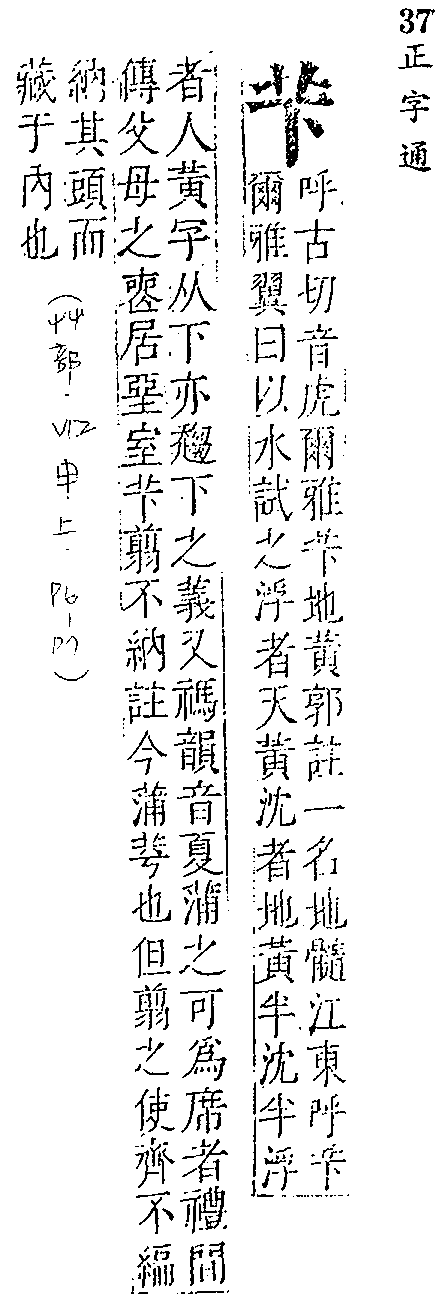 37正字通
芐
呼古切音虎爾雅芐地黃郭註一名地髓江東呼芐
爾雅翼曰以水試之浮者天黃沈者地黃半沈半浮
者人黃字从下亦趨下之義又禡韻音夏蒲之可為席者禮間
傳父母之喪居堊室芐翦不納註今蒲苹也但翦之使齊不編
納其頭而
藏于內也
(艸部.V12申上.P6-P7)